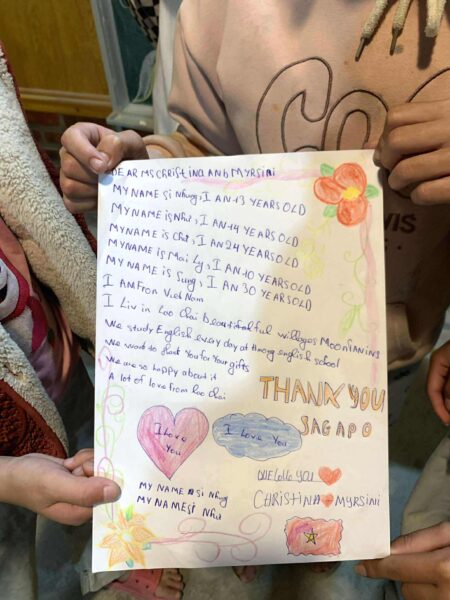 DEAR MS CHRiSTiNA AND MYRSiNi
MY NAME Si Nhung, I AN 13 YEARS OLD
MY NAME iS Như, I AN 14 YEARS OLD
MY NAME iS Chớ, I AN 24 YEARS OLD
MY NAME iS Mai Ly, I AN 10 YEARS OLD
MY NAME iS Sung, I AN 30 YEARS OLD
I AM From Viet Nam
I Liv in Lao Chai beautiful
We study English every day at Hmong english school
We want to thank You for Your gifts
We are so happy about it
A lot of love from Lao chai
THANK YOU
SAGAPO
I Love
You
I Love You
YOU
CHRISTINA MYRSiNi
MY NAME Si Nhung
MY NAME Si Như